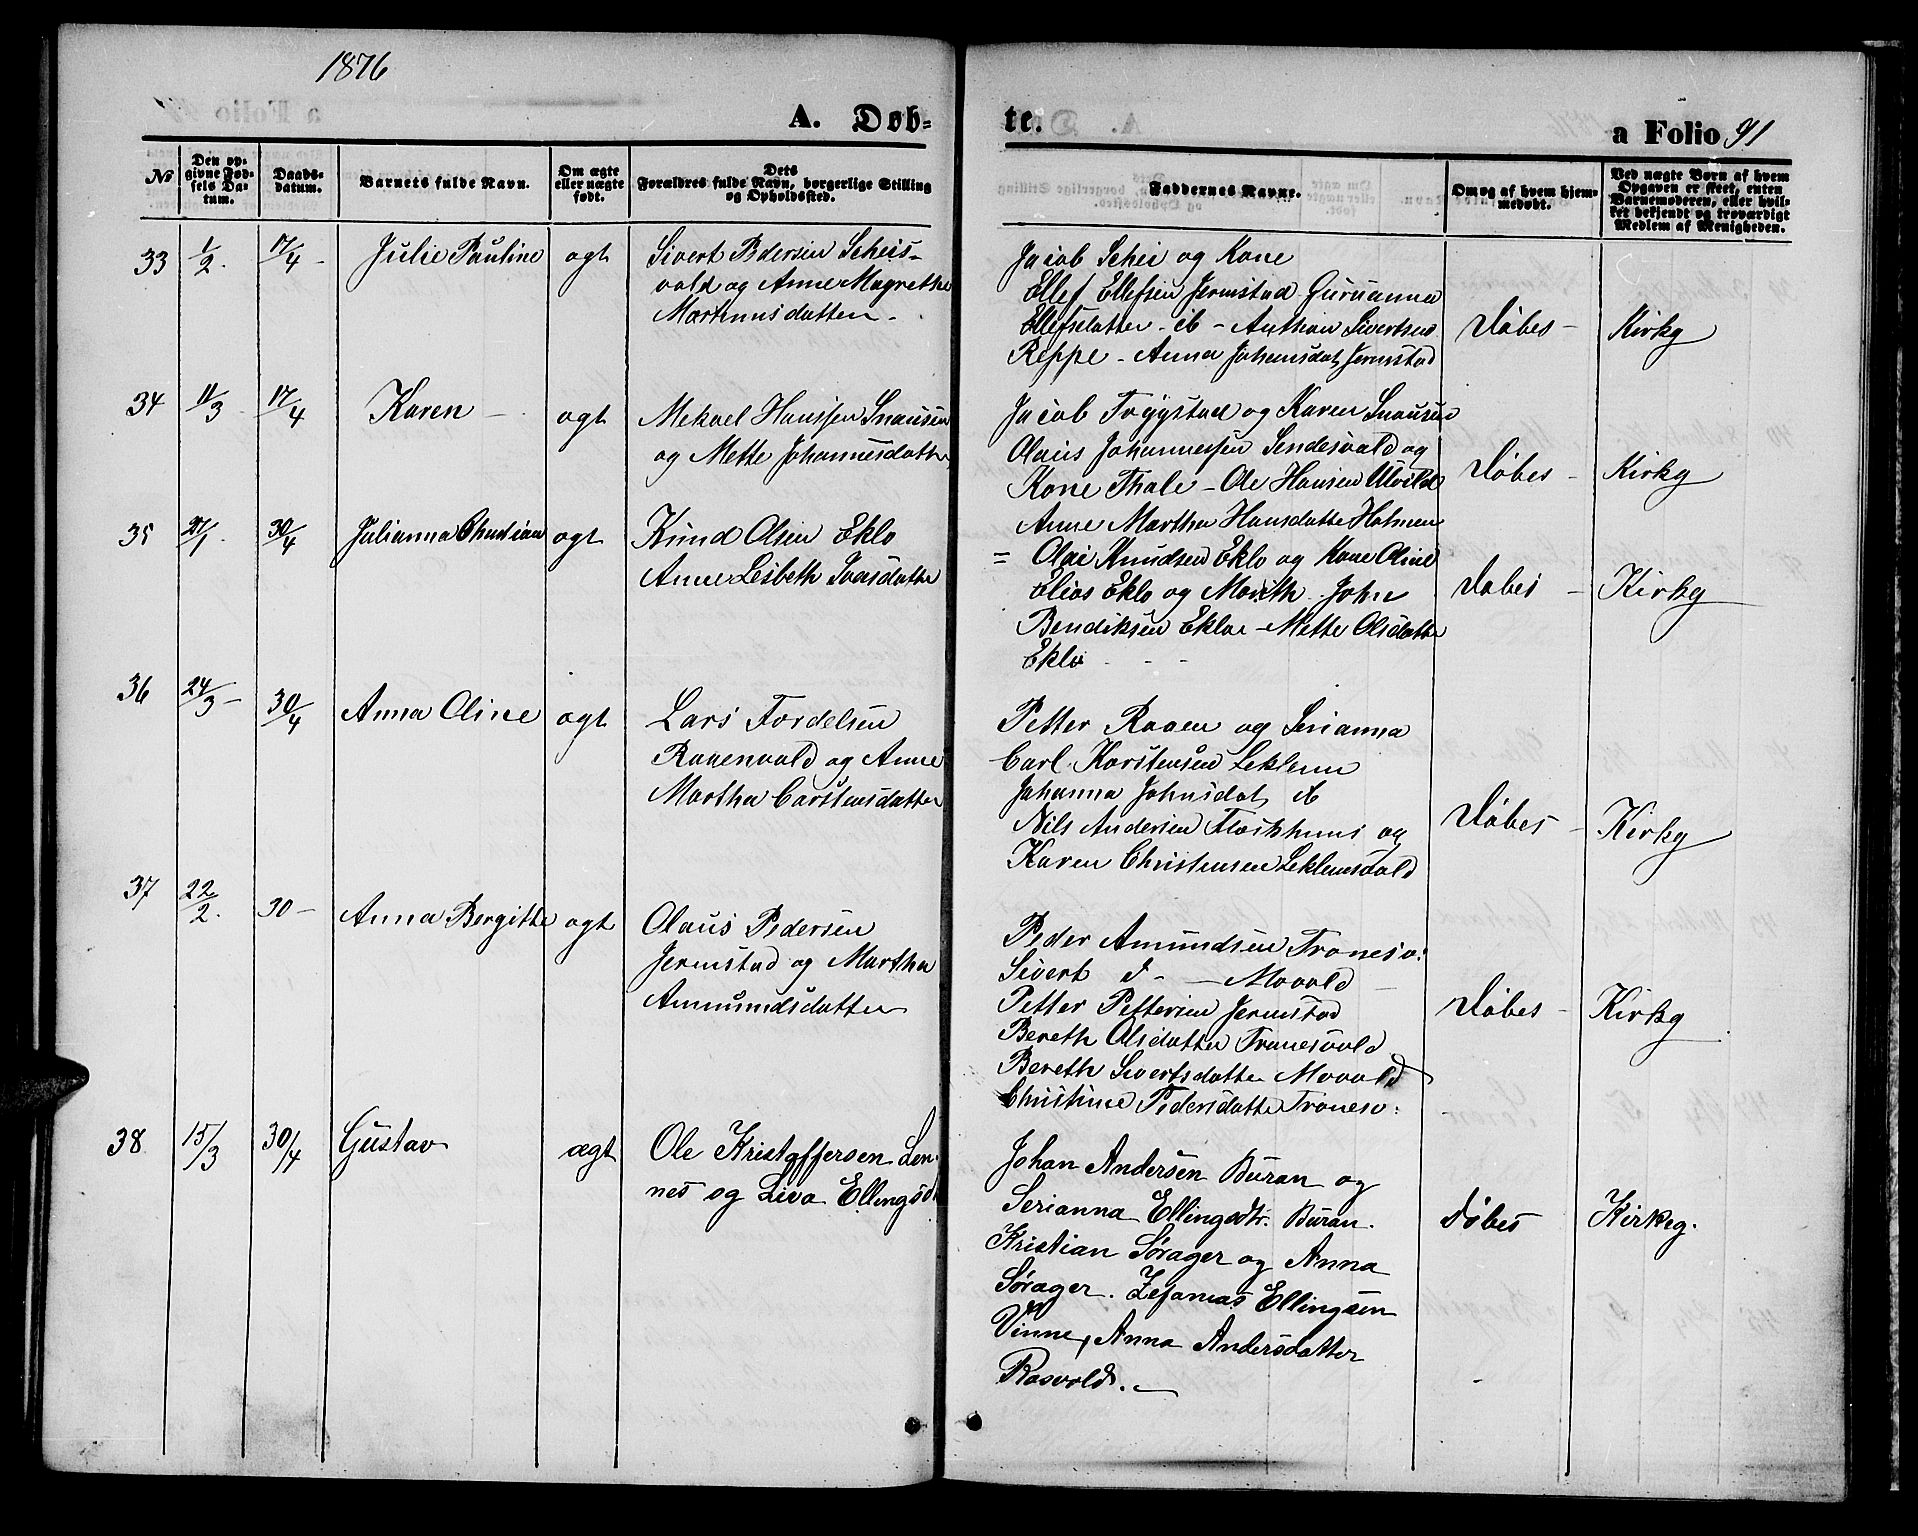 1876
A. Døb-
te.
a Folio 91
No
Den op-
givne Fød-
sels Da-
tum.
Daabs-
datum.
Barnets fulde Navn.
Om ægte
eller uægte
født.
Dets
Forældres fulde Navn, borgerlige Stilling
og Opholdssted.
Faddernes Navne.
Om og af hvem hjem-
medøbt.
Ved uægte Børn af hvem
Opgaven er skeet, enten
Barnemoderen, eller hvil-
ket bekjendt og troværdigt
Medlem af Menigheden.
33 1/2 17/4 - Julie Pauline ogt
Sivert Pedersen Scheis-
vald og Anne Magrethe
Martinusdatter -
Jacob Schei og Kone
Ellef Ellefsen Jermstad Guruanna
Ellefsdatter - ib - Anthon Sivertsen
Reppe - Anna Johansdat Jermstad
Døbes - Kirkg
34 11/3 17/4 Karen - ogt
Mekael Hanssen Snausen
og Mette Johannesdatter
Jacob Tryggstad og Karen Snausen
Olaus Johannessen Sendesvald og
Kone Thale - Ole Hansen Ulvild
Anne Martha Hansdatte Holmen
Døbes - Kirkg
35 27/1 30/4 Julianna Christian ogt
Knud Olsen Eklo
Anne Lesbeth Ivarsdatte
= Olai Knudsen Eklo og Kone Oline
Elias Eklo og Marith John
Bendiksen Ekloe - Mette Olsdatte
Eklo - -
Døbes - Kirkg
36 24/3 - 30/4 Anna Oline ogt
Lars Fordelsen
Raaenvald og Anne
Martha Carstensdatter
Petter Raaen og Serianna
Carl Karstensen Leklemn
Johanna Johnsdat ib
Nils Andersen Floskhuus og
Karen Christensen Leklemsvald
Døbes - Kirkg
37 22/2 30 - Anna Bergitte ogt
Olaus Pedersen
Jermstad og Martha
Ammundsdatter
Peder Amundsen Tronesv:
Sivert d - - Movald -
Petter Pettersen Jermstad
Bereth Olsdatter Tronesvald
Bereth Sivertsdatter Movald
Christine Pedersdatte Tronesv:
Døbes - Kirkg
38 15/3 30/4 Gustav ægt
Ole Kristoffersen Len-
nes og Liva Ellingsd
Johan Andersen Buran og
Serianna Ellingsdtr. Buran.
Kristian Sørager og Anna
Sørager. Zefanias Ellingsen
Vinne, Anna Andersdatter
Rosvold. -
Døbes Kirkeg.